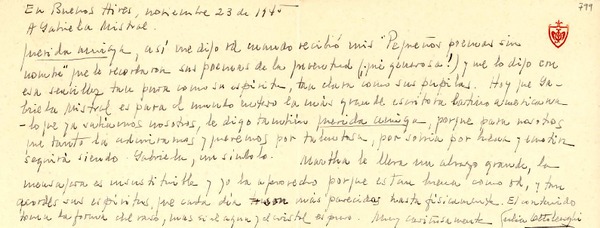 En Buenos Aires, noviembre 23 de 1945
A Gabriela Mistral.
querida amiga, así me dijo Ud cuando recibió mis "Pequeños poemas sin
nombre" que le recordaron sus poemas de la juventud (¡qué generosa!) y me lo dijo con
esa sencillez tan pura como su espíritu, tan clara como sus pupilas. Hoy que Ga-
briela Mistral es para el mundo entero la más grande escritora latino americana
- lo que ya sabíamos nosotros, le digo también querida amiga, porque para nosotros
que tanto la admiramos y queremos por talentosa, por sabia por buena y
seguirá siendo Gabriela, un símbolo. Martha le lleva un abrazo grande, la
mensajera es insustituible y yo la aprovecho porque es tan buena como Ud, y tan
acordes sus espíritus, que cada día son más parecidas hasta físicamente. El contenido
toma la forma del vaso, mas si el agua y el cristal es puro. Muy cariñosamente Julia
799